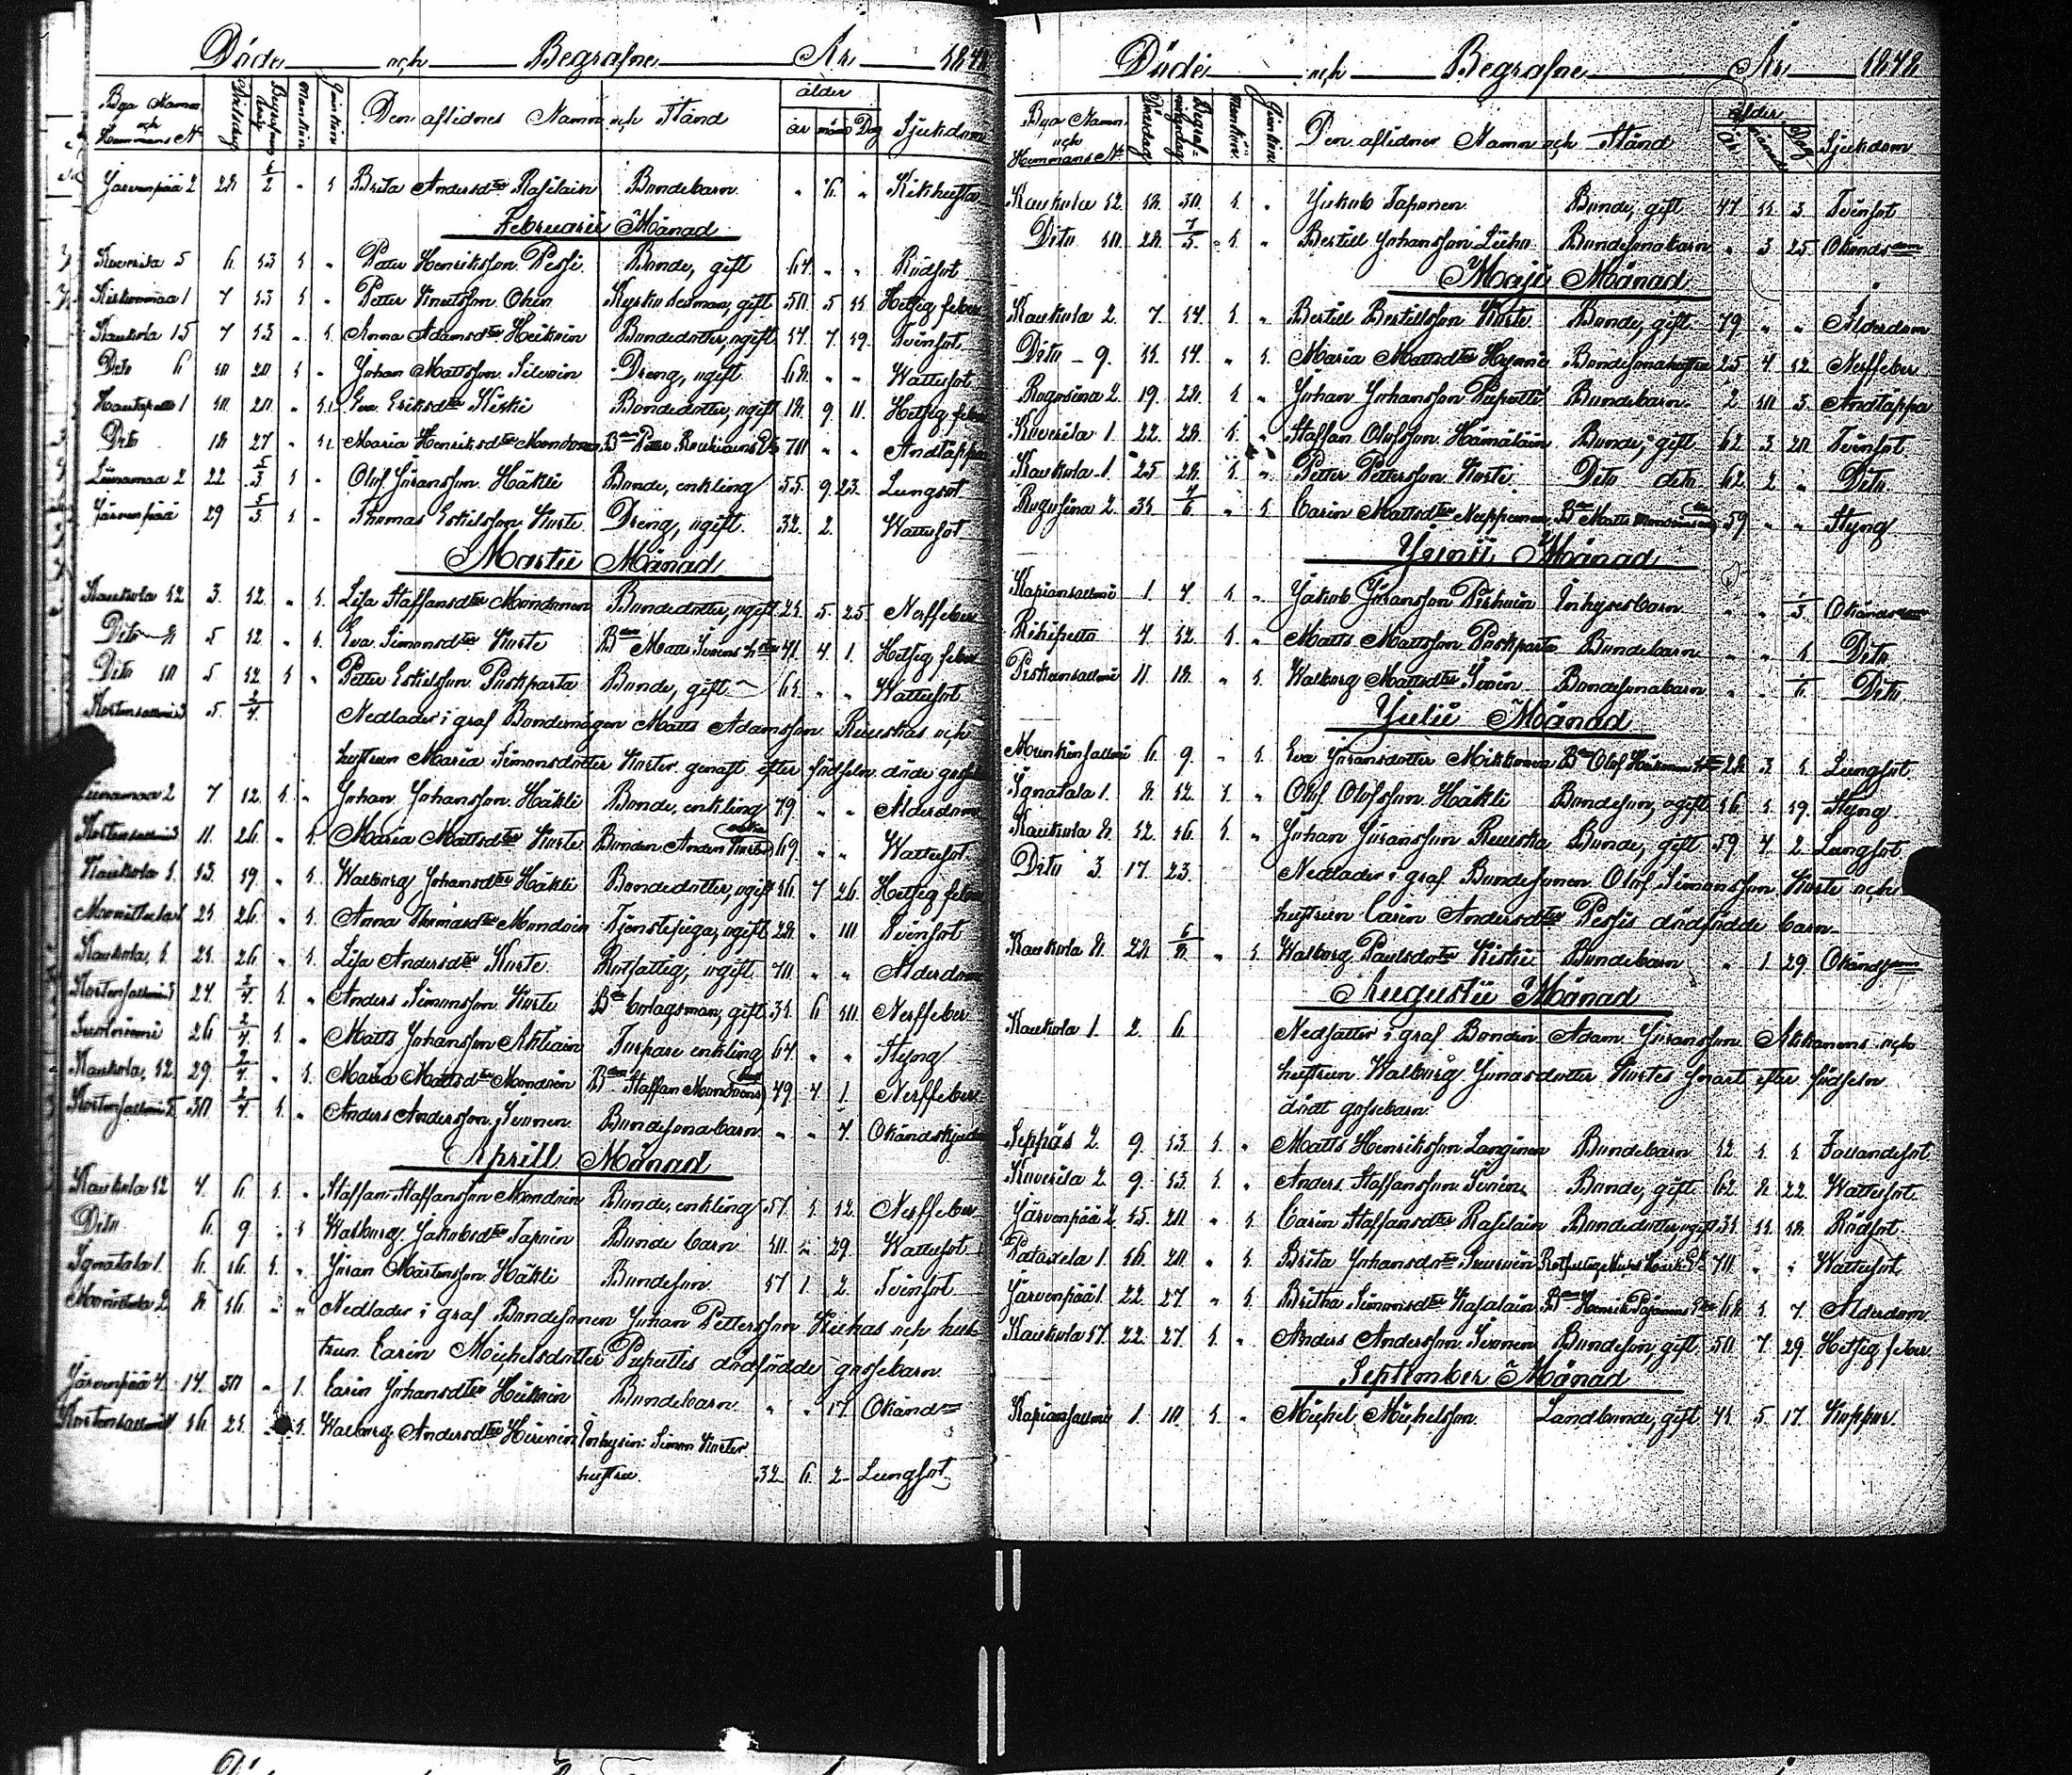 Döde och Begrafne År 1848
Bya Namn och Hemmans No Dödsdag Begrafningsdag Mankön Qvinkön Den aflidnes Namn och Stånd ålder år mån Dag Sjukdom
Järvenpää 2 28 6/2 " 1 Brita Andersdter Rasilain Bondebarn " 6 " Kikhusta
Februarii Månad
Kuverila 5 6 13 1 " Petter Henriksson Pessi Bonde, gift 64 " " Rödsot
7 13 1 " Petter Knutsson Kyrkovärdman, gift 50 5 11 Hetsig feber
Kaukola 15 7 13 " 1 Anna Adamsdter Heikoin Bondedotter, ogift 14 7 19 Tvinsot
Dito 6 10 20 1 " Johan Mattsson Silvoin Dreng, ogift 68 " " Wattusot
1 10 20 " 1 Eva Eriksdter Kiski Bondedotter, ogift 18 9 11 Hetsig feber
Dito 18 27 " 1 Maria Henriksdter 70 " " Andtäppa
Liinamaa 2 22 5/3 1 " Olof Göransson Häkli Bonde, enkling 55 9 23 Lungsot
Järvenpää 29 5/3 1 " Thomas Eskilsson Kurte Dreng, ogift 32 2 Wattusot
Martii Månad
Kaukola 12 3 12 " 1 Lisa Staffansdter Mondonen Bondedotter, ogift 21 5 25 Nerffeber
Dito 8 5 12 " 1 Eva Simonsdter Kurte Bden Matts 41 4 1 Hetsig feber
Dito 10 5 12 1 " Petter Eskilsson Puskparta Bonde, gift 61 " " Wattusot
Kortensalmi 3 5 2/4 Nedlades i graf Bondemågen Matts Adamsson Rieuskas och
hustrun Maria Simonsdotter Kurtes genast efter födseln döde
Liinamaa 2 7 12 1 " Johan Johansson Häkli Bonde, enkling 79 " " Ålderdom
Kortensalmi 3 11 26 " 1 Maria Mattsdter Kurte Bonden Anders Kurtes enka 69 " " Wattusot
Kaukola 1 13 19 " 1 Walborg Johansdter Häkli Bondedotter, ogift 16 7 26 Hetsig feber
21 26 " 1 Anna Thomasdter Mondoin Tjenstepiga, ogift 28 " 10 Tvinsot
Kaukola 1 21 26 " 1 Lisa Andersdter Kurte Rotfattig, ogift 70 " " Ålderdom
Kortensalmi 3 27 2/4 1 " Anders Simonsson Kurte Bde bolagsman, gift 31 6 10 Nerffeber
26 2/4 1 " Matts Johansson Akkiain Torpare enkling 64 " " Styng
Kaukola 12 29 2/4 " 1 Maria Mattsdter Mondoin Bden Staffan Mondoins 49 4 1 Nerffeber
Kortensalmi 30 2/4 1 " Anders Andersson Sivonen Bondesonabarn " " 7 Okändsjukdom
Aprill Månad
Kaukola 12 4 6 1 " Staffan Staffansson Mondoin Bonde, enkling 57 1 12 Nerffeber
Dito 6 9 " 1 Walborg Jakobsdter Tapoin Bonde barn 10 29 Wattusot
Ignatala 1 6 16 1 " Jöran Mårtensson Häkli Bondeson 17 1 2 Tvinsot
2 8 16 " " Nedlades i graf Bondesonen Johan Pettersson Kiukas och hus-
trun Carin Michelsdotter Puputtis dödfödde gossebarn
Järvenpää 4 14 30 " 1 Carin Johansdter Heikoin Bondebarn " " 17 Okänd
Kortensalmi 16 21 " 1 Walborg Andersdter Hirvoin Inhysen Simon Kurtes
hustru 32 6 2 Lungsot
Döde och Begrafne År 1848
Bya Namn och Hemmans No Dödsdag Begrafningsdag Mankön Qvinkön Den aflidnes Namn och Stånd ålder År månad Dag Sjukdom
Kaukola 12 18 30 1 " Jakob Taponen Bonde, gift 47 11 3 Tvinsot
Dito 10 28 7/5 1 " Bertill Johansson Bondesonabarn " 3 25 Okändsdom
Maji Månad
Kaukola 2 7 14 1 " Bertill Bertillsson Kurte Bonde, gift 79 " " Ålderdom
Dito 9 11 14 " 1 Maria Mattsdter Hynnin Bondesonahustru 25 4 12 Nerffeber
Rogosina 2 19 28 1 " Johan Johansson Puputti Bondebarn 2 10 3 Andtäppa
Kuverila 1 22 28 1 " Staffan Olofsson Hämäläin Bonde, gift 62 3 20 Tvinsot
Kaukola 1 25 28 1 " Petter Pettersson Kurte Dito dito 62 2 " Dito
Rogosina 2 31 4/6 " 1 Carin Mattsdter Neuppanen Bden Matts 59 " " Styng
Junii Månad
Kapiansalmi 1 4 1 " Jakob Jöransson Pirhoin Inhysesbarn " " 1/3 Okändsdom
Riihipelto 4 12 1 " Matts Mattsson Puskparta Bondebarn " " 1 Dito
Piskunsalmi 11 18 " 1 Walborg Mattsdter Sivoin Bondesonabarn " " Dito
Julii Månad
Munkinsalmi 6 9 " 1 Eva Jöransdotter Mikkonen Bden Olof 28 3 1 Lungsot
Ignatala 1 8 12 1 " Olof Olofsson Häkli Bondeson, ogift 16 1 19 Styng
Kaukola 8 12 16 1 " Johan Jöransson Reuska Bonde, gift 59 4 2 Lungsot
Dito 3 17 23 Nedlades i graf Bondesonen Olof Simonsson Kurte och
hustrun Carin Andersdter Pessis dödfödde barn
Kaukola 8 28 6/8 " 1 Walborg Paulsdoter Kiskii Bondebarn " 1 29 Okändsdom
Augustii Månad
Kaukola 1 2 6 Nedsattes i graf Bonden Adam Jöransson Akkanens och
hustrun Walborg Jonasdotter Kurtes snart efter födseln
dödt gossebarn
Seppäs 2 9 13 1 " Matts Henriksson Langinen Bondebarn 12 1 1 Fallandesot
Kuverila 2 9 13 1 " Anders Staffansson Sivoin Bonde, gift 62 8 22 Wattusot
Järvenpää 2 15 20 " 1 Carin Staffansdter Rasilain Bondedotter, ogift 31 11 18 Rödsot
1 16 20 " 1 Brita Johansdter 70 " " Wattusot
Järvenpää 1 22 27 " 1 Britha Simonsdter Kasalain Bden Henrik 68 1 7 Ålderdom
Kaukola 17 22 27 1 " Anders Andersson Sivonen Bondeson, gift 50 7 29 Hetsig feber
September Månad
Kapiansalmi 1 10 1 " Michel Michelsson Landbonde, gift 41 5 17 Koppor